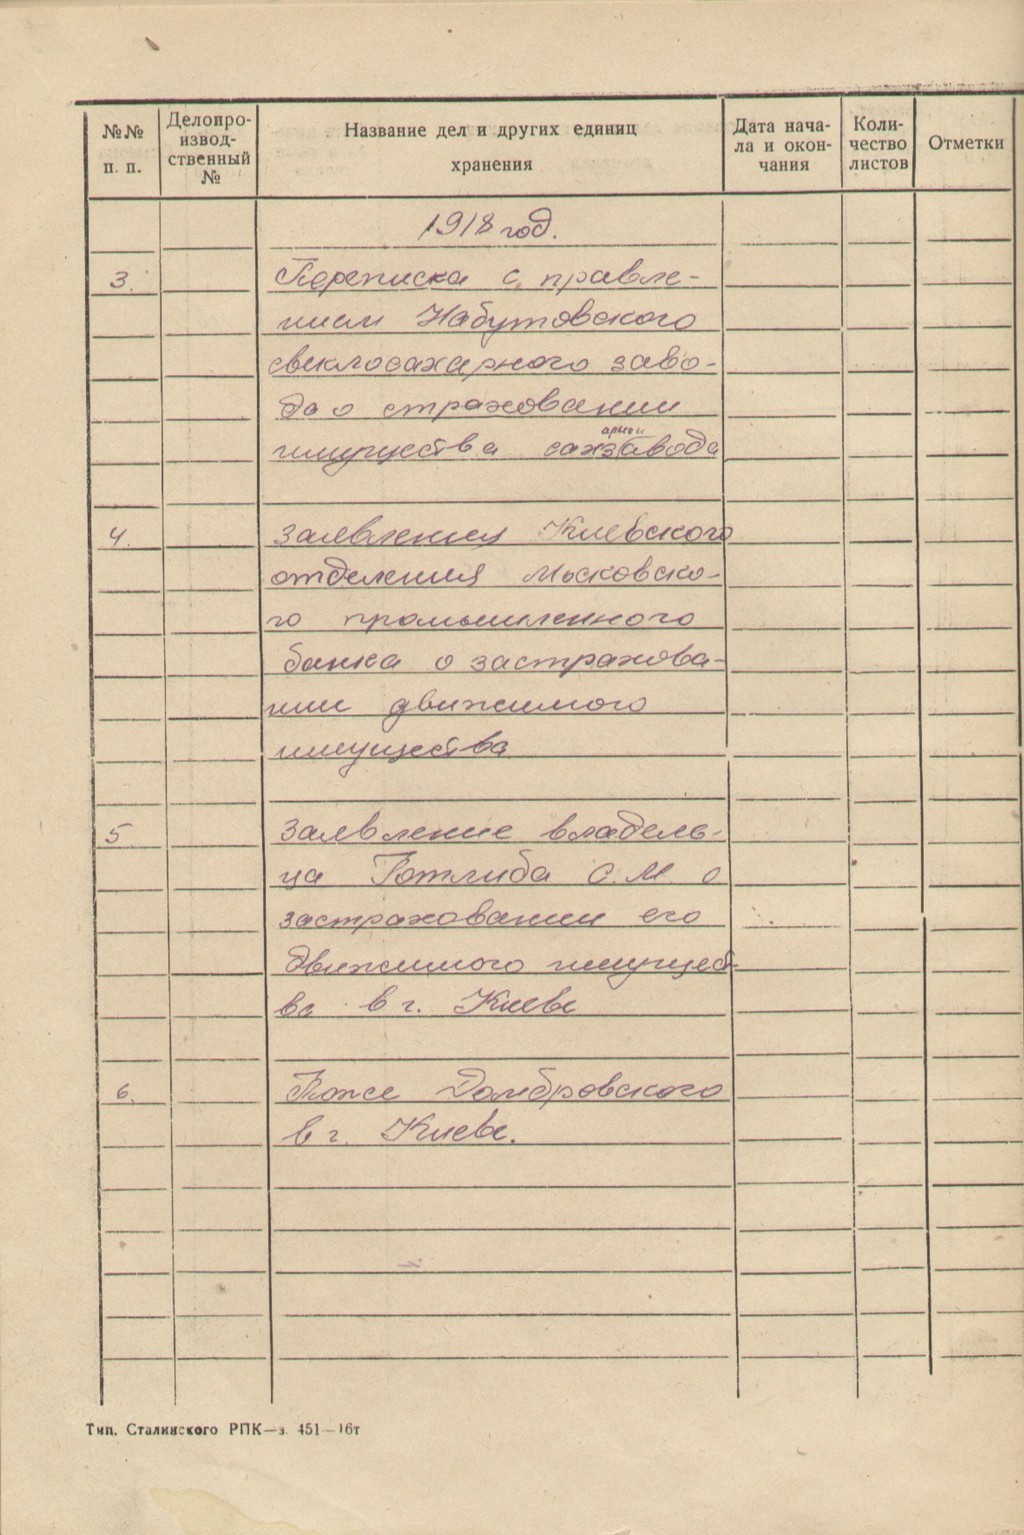 №№ п. п.
Делопро-
извод-
ственный
№
Название дел и других единиц
хранения
Дата нача-
ла и окон-
чания
Коли-
чество
листов
Отметки
1918 год.
3. Переписка с правле-
нием Набутовского
свеклосахарного заво-
да о страховании
имущества сахзавода
арног
4. Заявления Киевского
отделения Московско-
го промышленного
банка о застрахова-
нии движимого
имущества
5. Заявление владель-
ца Готлиба С.М о
застраховании его
движимого имущест-
ва в г. Киеве
6. Тоже Домбровского
в г. Киеве.
Тип. Сталинского РПК—з. 451—16т